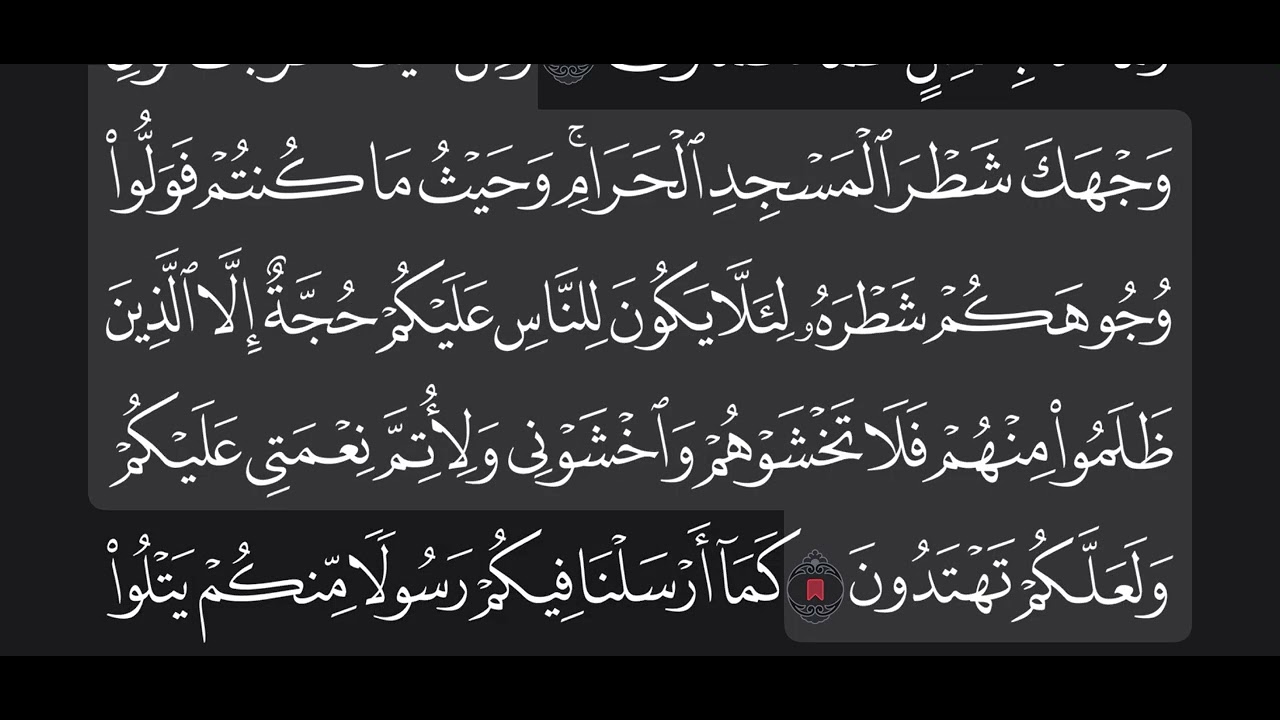 وَجۡهَكَ شَطۡرَ ٱلۡمَسۡجِدِ ٱلۡحَرَامِۚ وَحَيۡثُ مَا كُنتُمۡ فَوَلُّواْ
وُجُوهَكُمۡ شَطۡرَهُۥ لِئَلَّا يَكُونَ لِلنَّاسِ عَلَيۡكُمۡ حُجَّةٌ إِلَّا ٱلَّذِينَ
ظَلَمُواْ مِنۡهُمۡ فَلَا تَخۡشَوۡهُمۡ وَٱخۡشَوۡنِي وَلِأُتِمَّ نِعۡمَتِي عَلَيۡكُمۡ
وَلَعَلَّكُمۡ تَهۡتَدُونَ كَمَآ أَرۡسَلۡنَا فِيكُمۡ رَسُولٗا مِّنكُمۡ يَتۡلُواْ